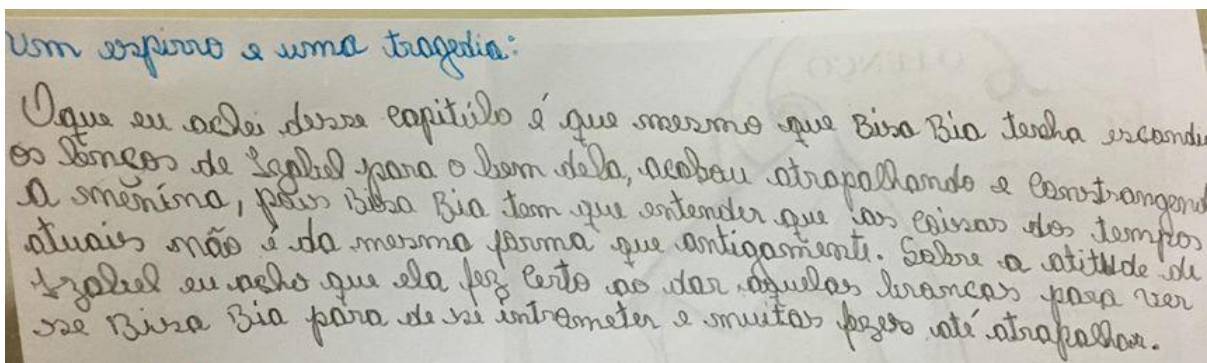 Um espirro e uma tragedia:
O que eu achei desse capitúlo é que mesmo que Bisa Bia tenha escondi
os lenços de Izabel para o bem dela, acabou atrapalhando e constrangend
a menina, pois Bisa Bia tem que entender que as coisas dos tempos
atuais não é da mesma forma que antigamente. Sobre a atitude de
Izabel eu acho que ela fez certo ao dar aquelas broncas para ver
se Bisa Bia pára de se intrometer e muitas vezes até atrapalhar.